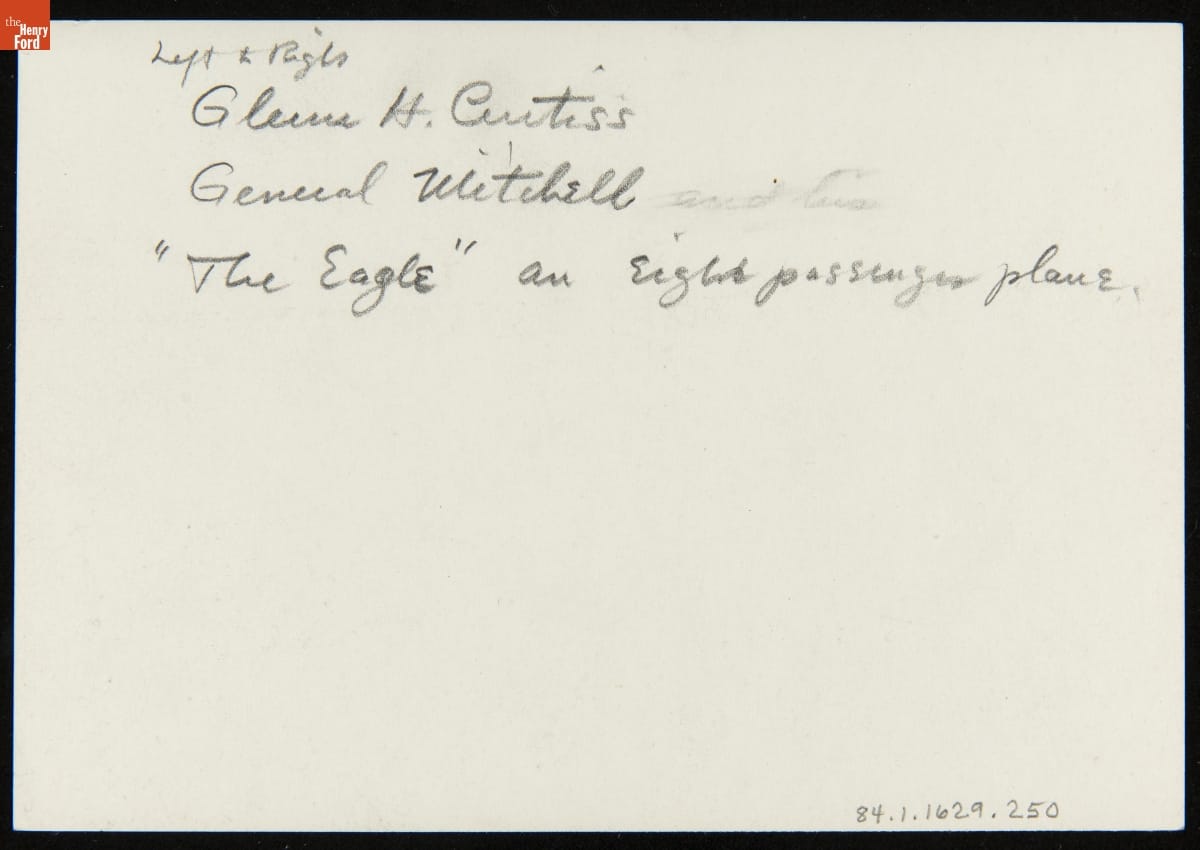 the
Henry
Ford
Left to Right
Glenn H. Curtiss
General Mitchell and
"The Eagle" an eight passenger plane.
84.1.1629.250